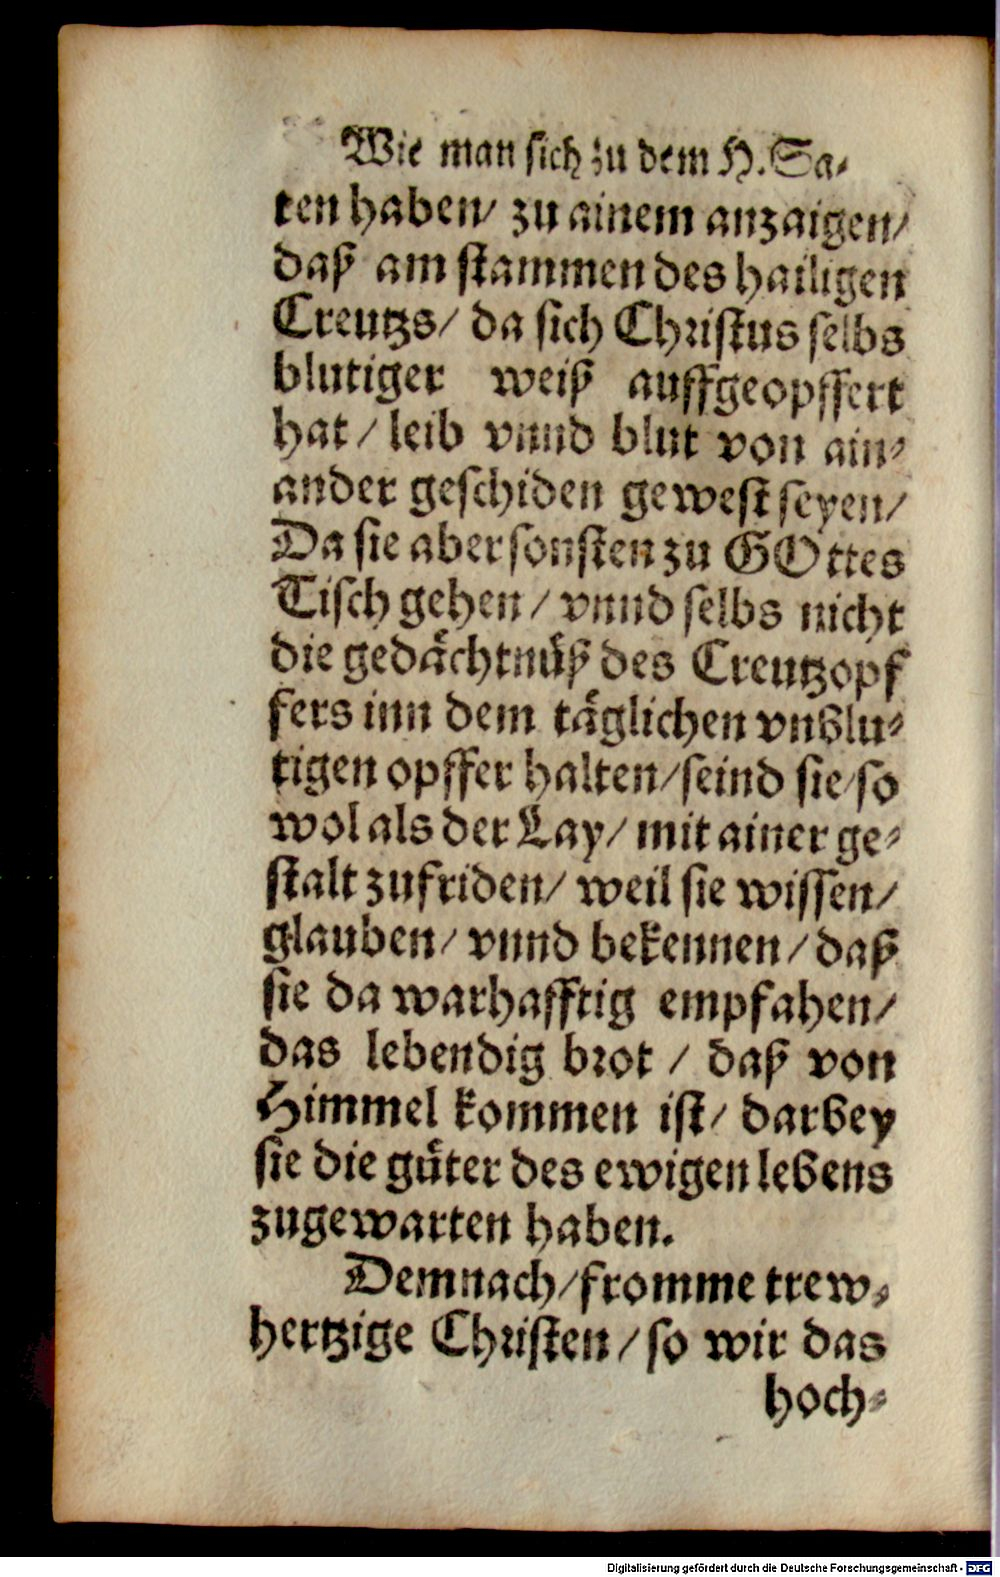 Wie man sich zu dem H. Sa⸗
ten haben/ zu ainem anzaigen/
daß am stammen des hailigen
Creutzs/ da sich Christus selbs
blutiger weiß auffgeopffert
hat / leib vnnd blut von ain⸗
ander geschiden gewest seyen/
Da sie aber sonsten zu GOttes
Tisch gehen / vnnd selbs nicht
die gedaͤchtnuͤß des Creutzopf
fers inn dem taͤglichen vnblu⸗
tigen opffer halten/ seind sie/ so
wol als der Lay/ mit ainer ge⸗
stalt zufriden/ weil sie wissen/
glauben/ vnnd bekennen/ daß
sie da warhafftig empfahen/
das lebendig brot / daß von
Himmel kommen ist/ darbey
sie die guͤter des ewigen lebens
zugewarten haben.
Demnach/ fromme trew⸗
hertzige Christen / so wir das
hoch⸗
Digitalisierung gefördert durch die Deutsche Forschungsgemeinschaft - DFG